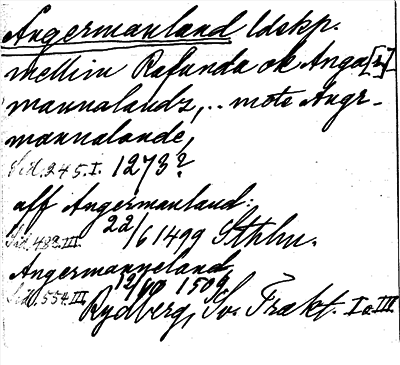 Ångermanland ldskp.
mellim Rafunda ok Anga[r]
mannalandz,.. mote Angr-
mannalande,
Sid. 245. I. 1273?
aff Angermanland:
Sid. 482. III. 22/6 1499 Sthlm.
Angermanneland,
Sid. 554. III. 12/10 1509
Rydberg, Sv. Trakt. I o. III.